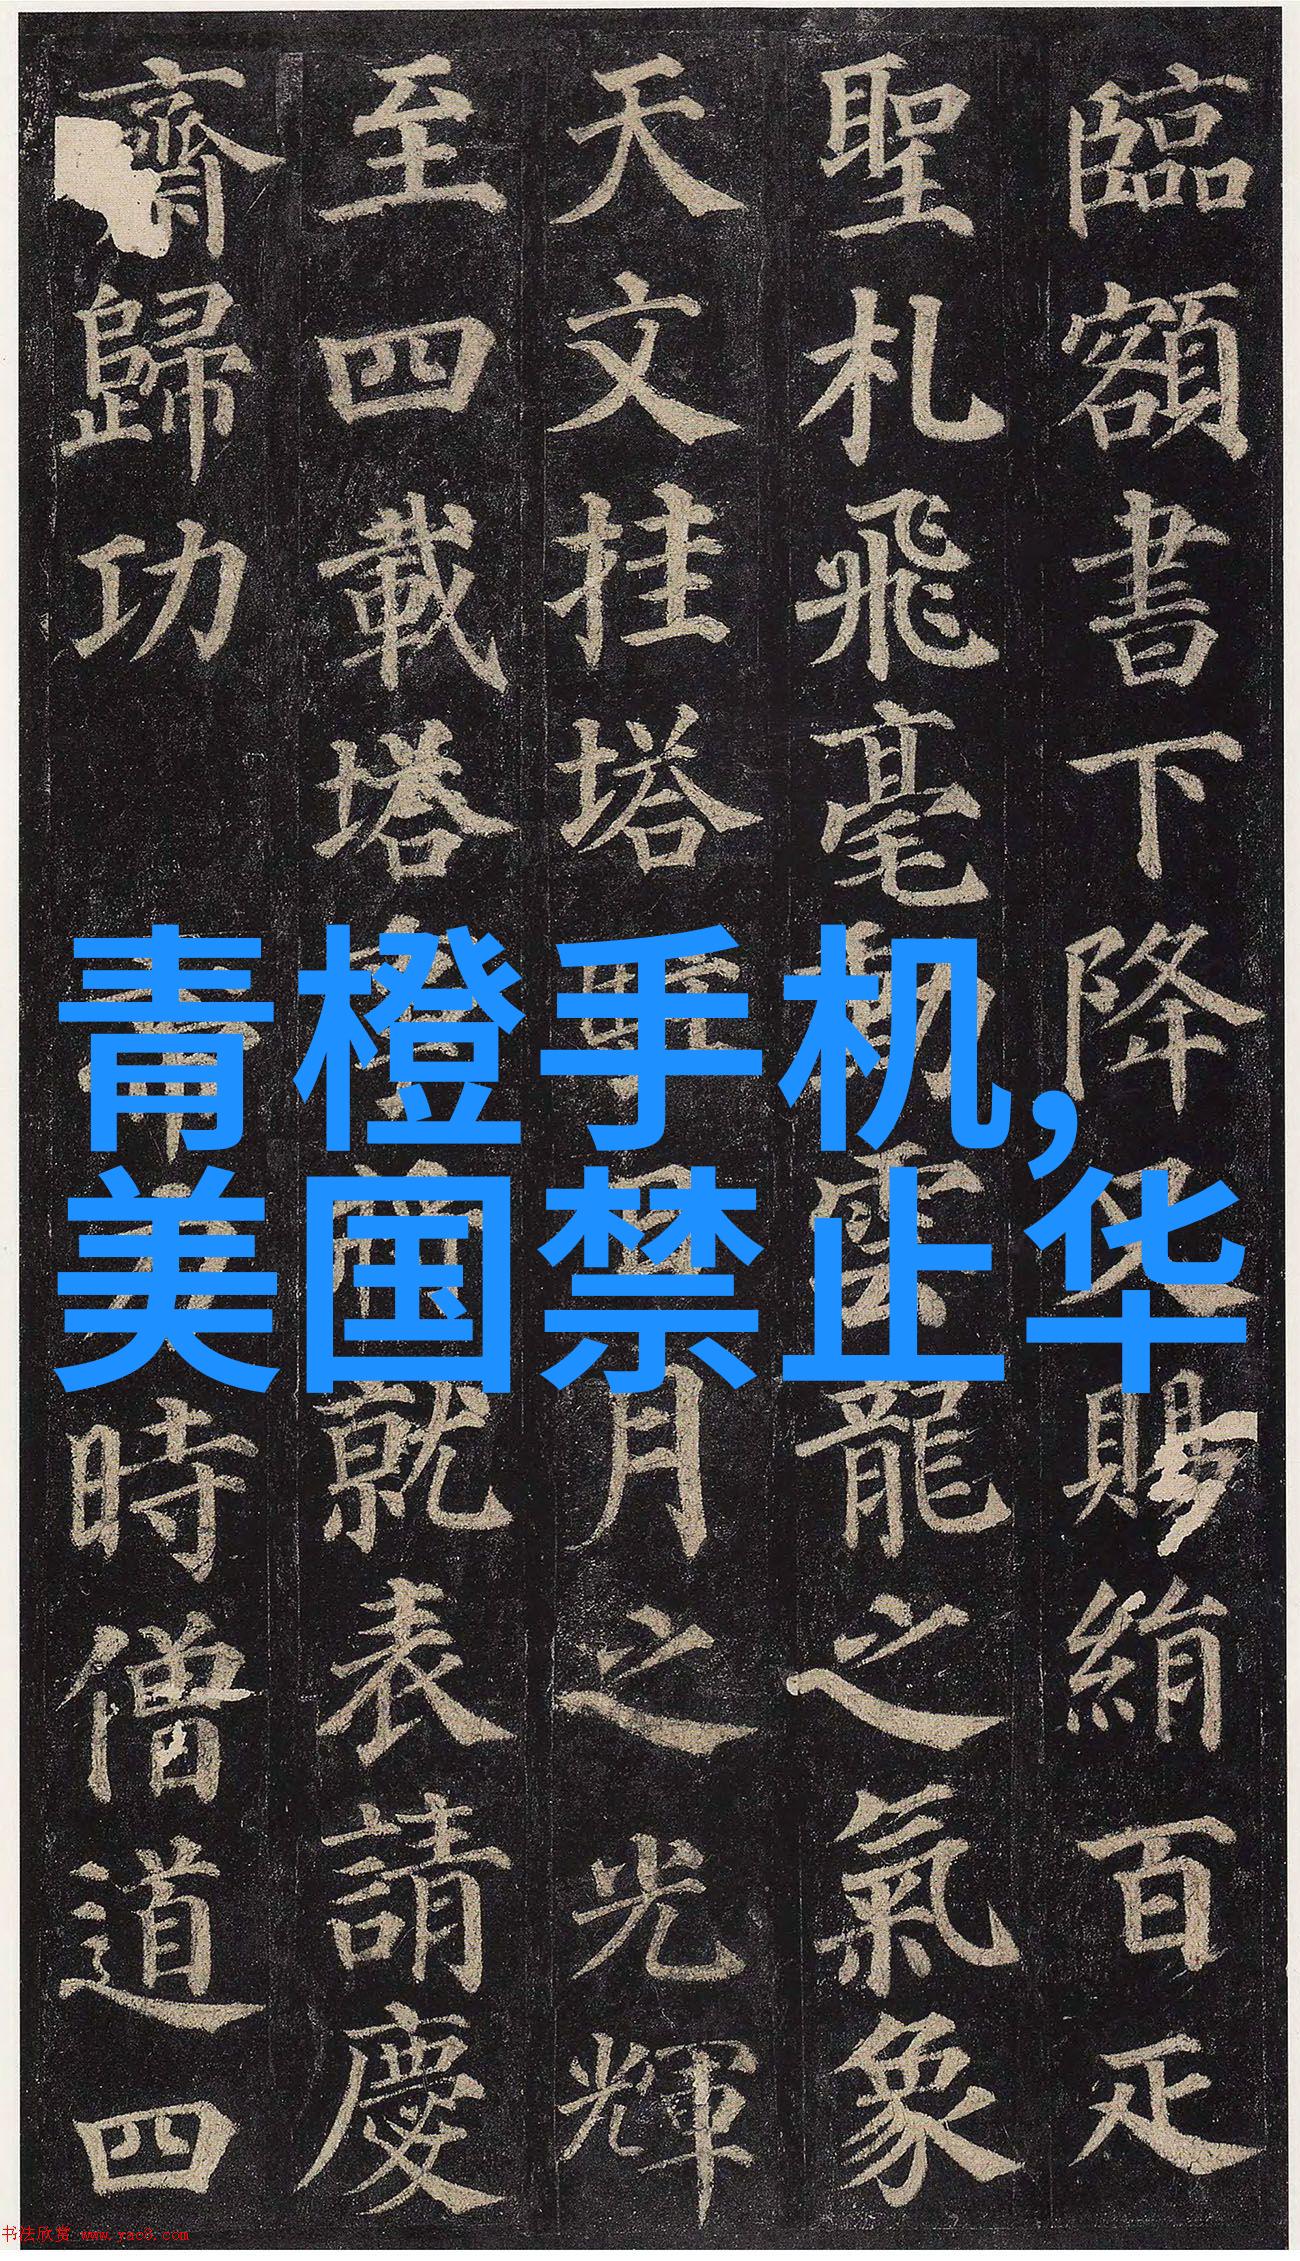 臨額書下降又賜絹百疋
聖札飛毫動雲龍之氣象
天文挂塔駐日月之光輝
至四載塔事將就表請慶
齋歸功帝力時僧道四
青橙手机,
美国禁止华
书法欣赏 www.yac8.com